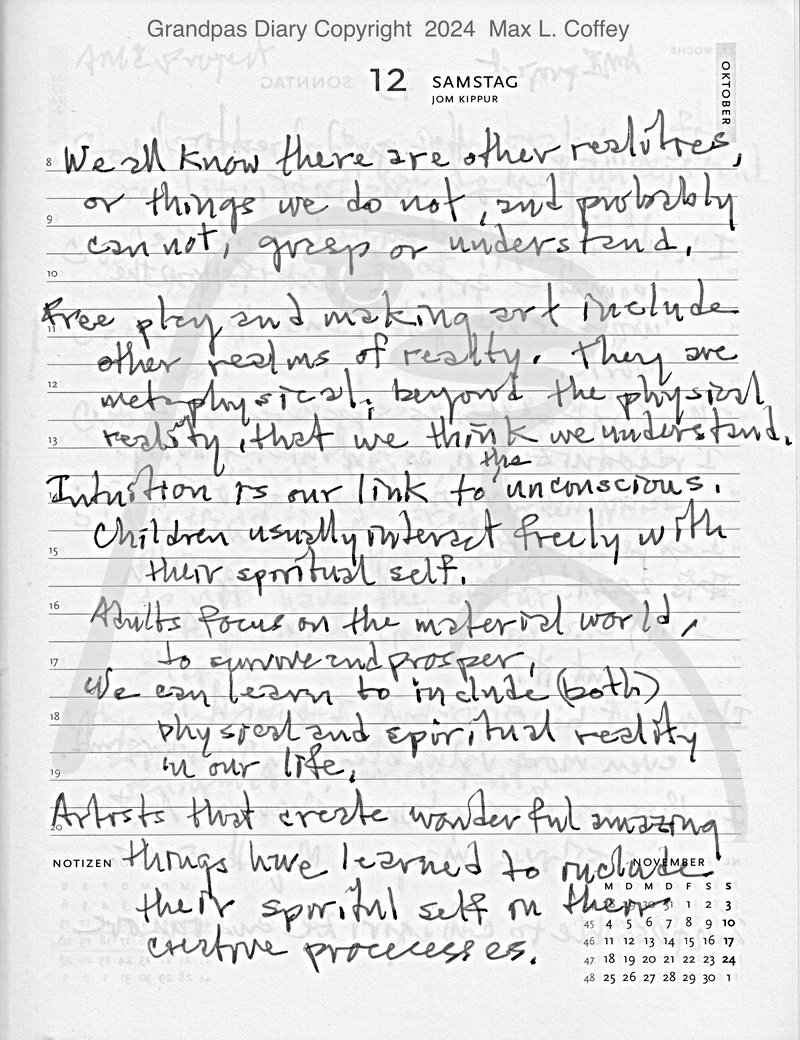 Grandpas Diary Copyright 2024 Max L. Coffey
12 SAMSTAG
JOM KIPPUR
OKTOBER
8 We all know there are other realitres,
or things we do not, and probably
9
can not, grasp or understand.
10
Free play and making art include
11
other realms of realty. They are
12
metaphysical; beyond the physical
13 reality, that we think we understand.
the
14 Intuition is our link to unconscious.
Children usually interact freely with
15
their spiritual self.
16 Adults focus on the material world,
17 to survive and prosper,
We can learn to include (both)
18
physical and spiritual reality
19 in our life.
Artists that create wonderful amazing
20
NOTIZEN things have learned to include
NOVEMBER
M D M D F S S
their spiritul self in theirs
44 28 29 30 31 1 2 3
45 4 5 6 7 8 9 10
creative proccesses.
46 11 12 13 14 15 16 17
47 18 19 20 21 22 23 24
48 25 26 27 28 29 30 1